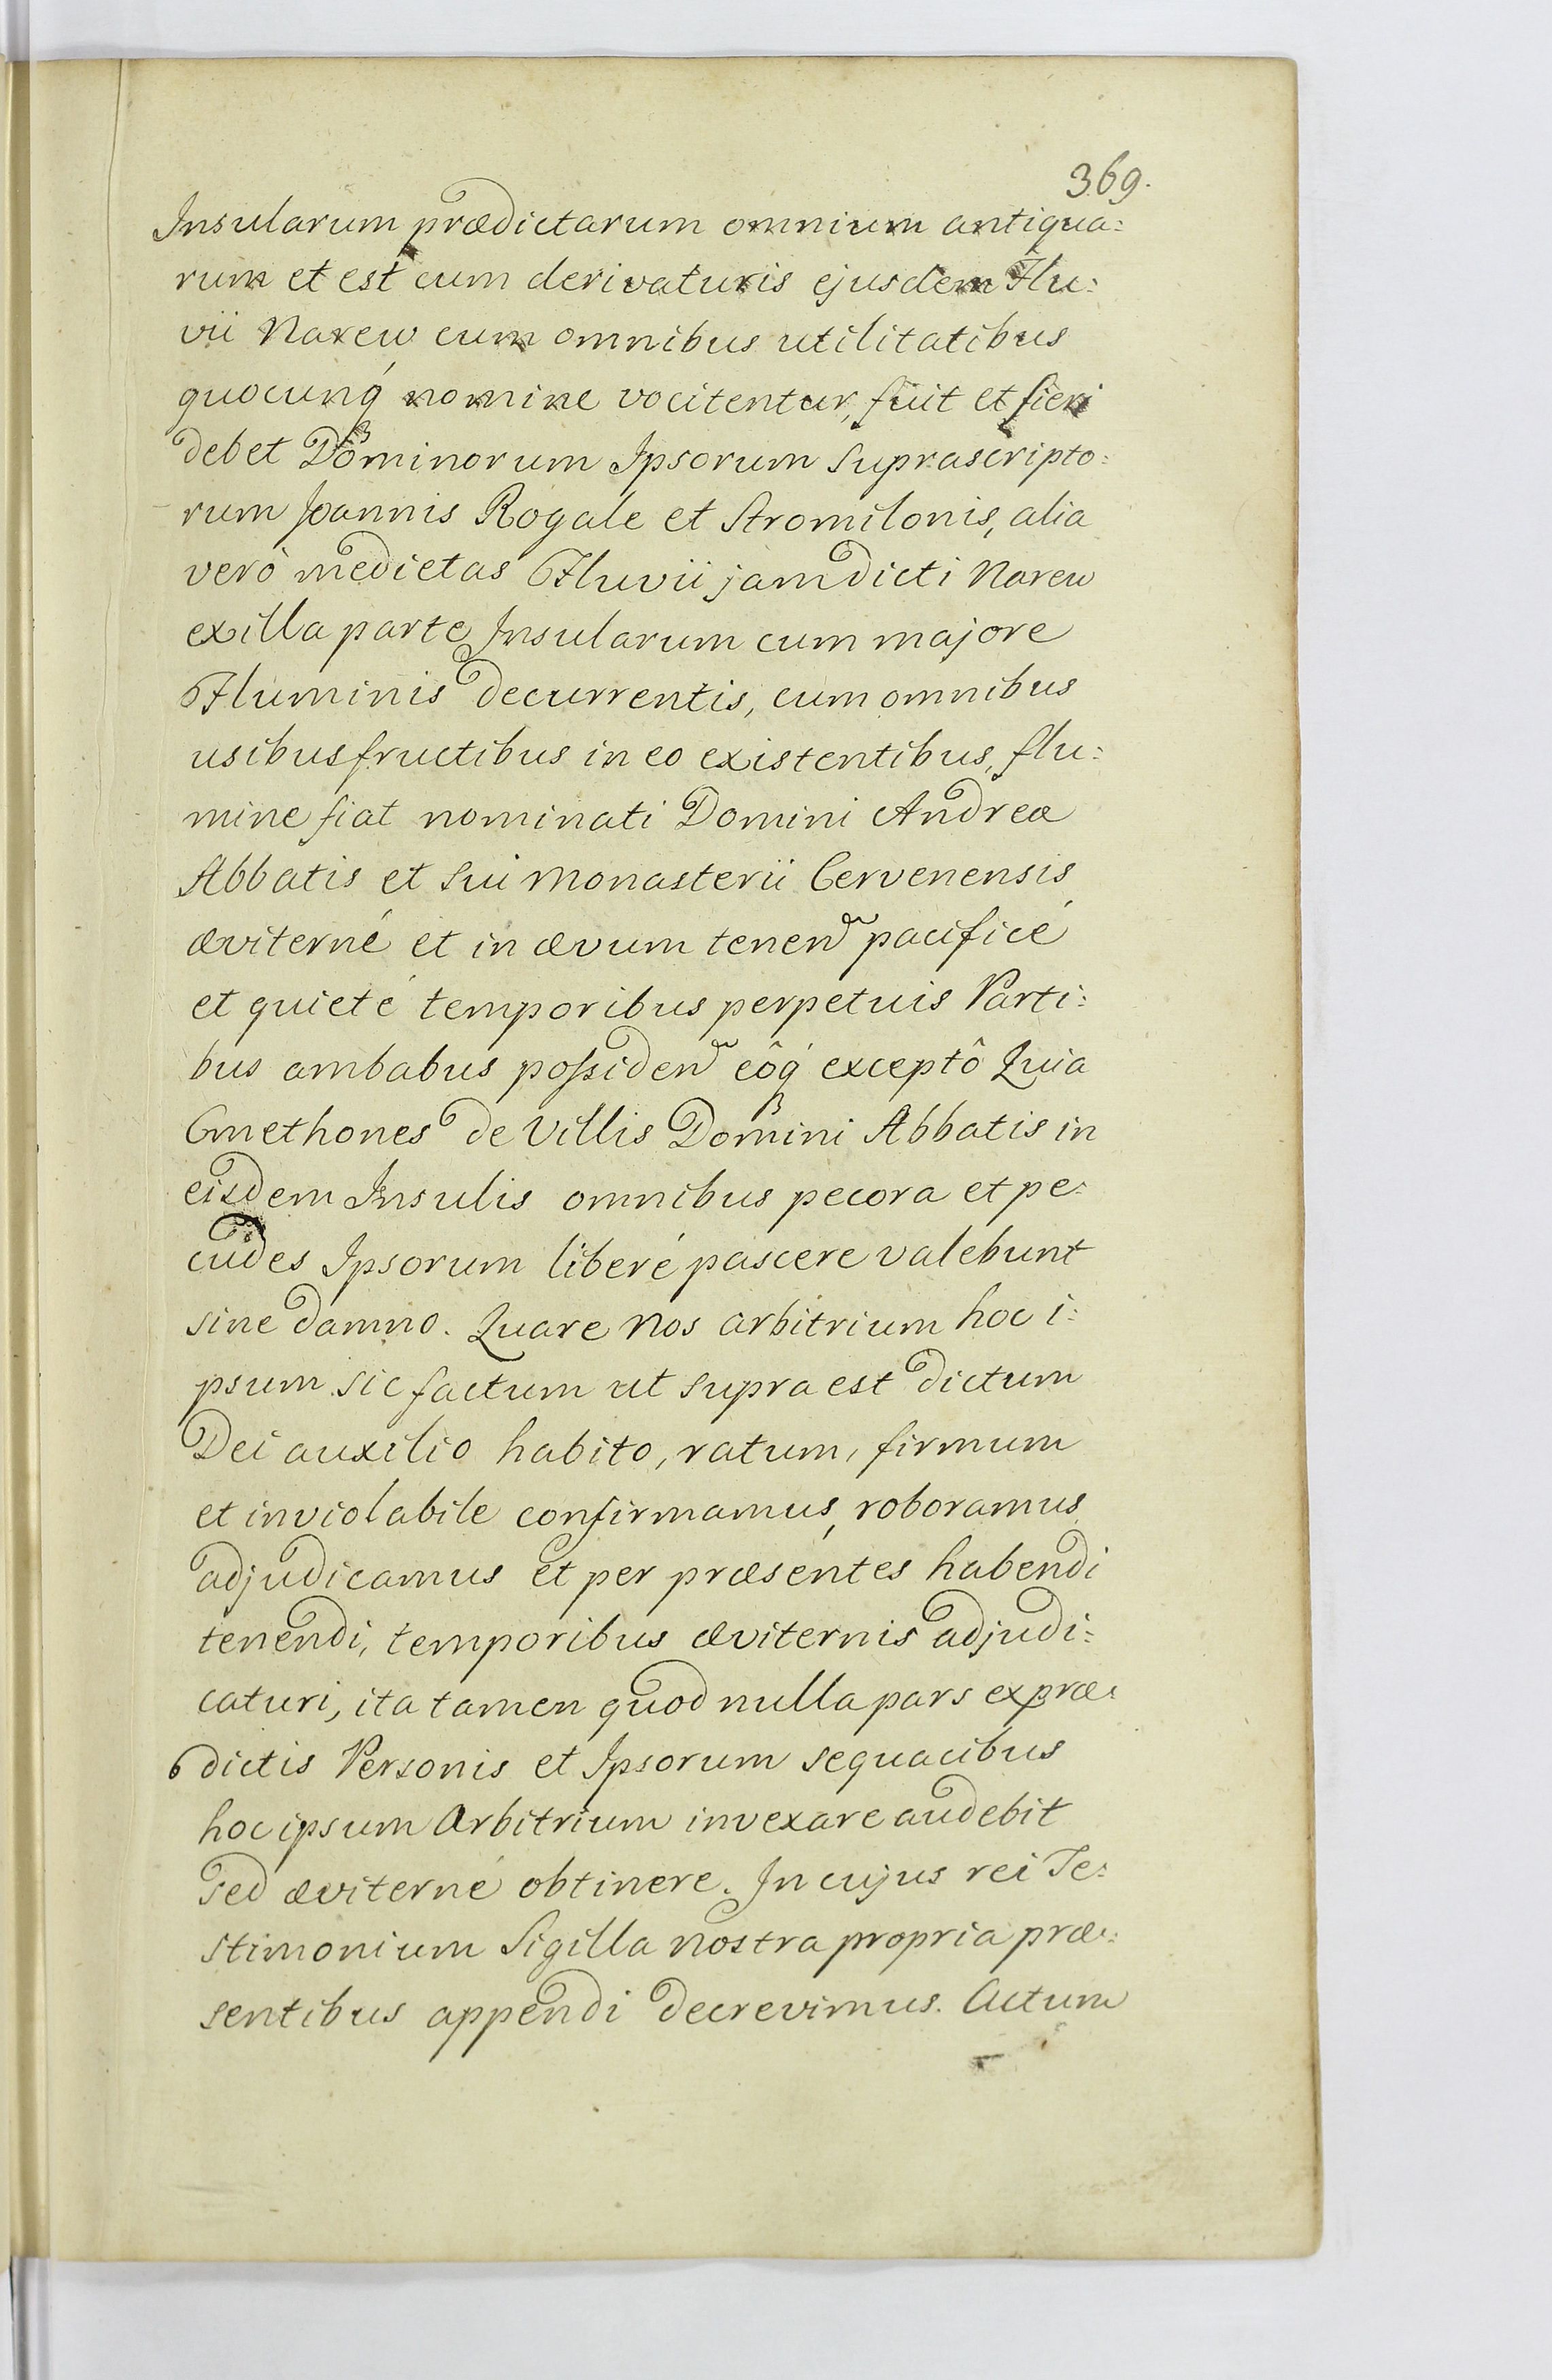 369.
Insularum prædictarum omnium antiqua:
rum et est cum derivaturis ejusdem Flu:
vii Narew cum omnibus utilitatibus
quocunq́ nomine vocitentur, fuit et fieri
debet Dominorum Ipsorum Suprascripto:
rum Joannis Rogale et Stromilonis, alia
verò medietas Fluvii jamdicti Narew
ex illa parte Insularum cum majore
Fluminis decurrentis, cum omnibus
usibusfructibus in eo existentibus, flu:
mine fiat nominati Domini Andreæ
Abbatis et Sui Monasterii Cervenensis
æviterné et in ævum tenend̃ pacificé
et quieté temporibus perpetuis Parti:
bus ambabus possidend̃ eôq́ exceptô Quia
Cmethones de Villis Domini Abbatis in
eisdem Insulis omnibus pecora et pe:
cudes Ipsorum liberé pascere valebunt
sine damno. Quare Nos arbitrium hoc i:
psum sic factum ut supra est dictum
Dei auxilio habito, ratum, firmum
et inviolabile confirmamus, roboramus
adjudicamus et per præsentes habendi
tenendi, temporibus æviternis adjudi:
caturi, ita tamen quod nulla pars ex præ:
dictis Personis et Ipsorum sequacibus
hoc ipsum Arbitrium invexare audebit
sed æviterné obtinere. In cujus rei Te:
stimonium Sigilla nostra propria præ:
sentibus appendi decrevimus. Actum